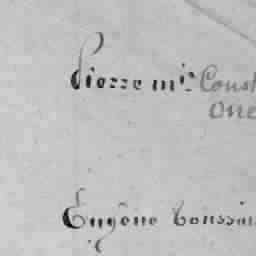 Pierre m.ie Const
One
Eugène Toussain